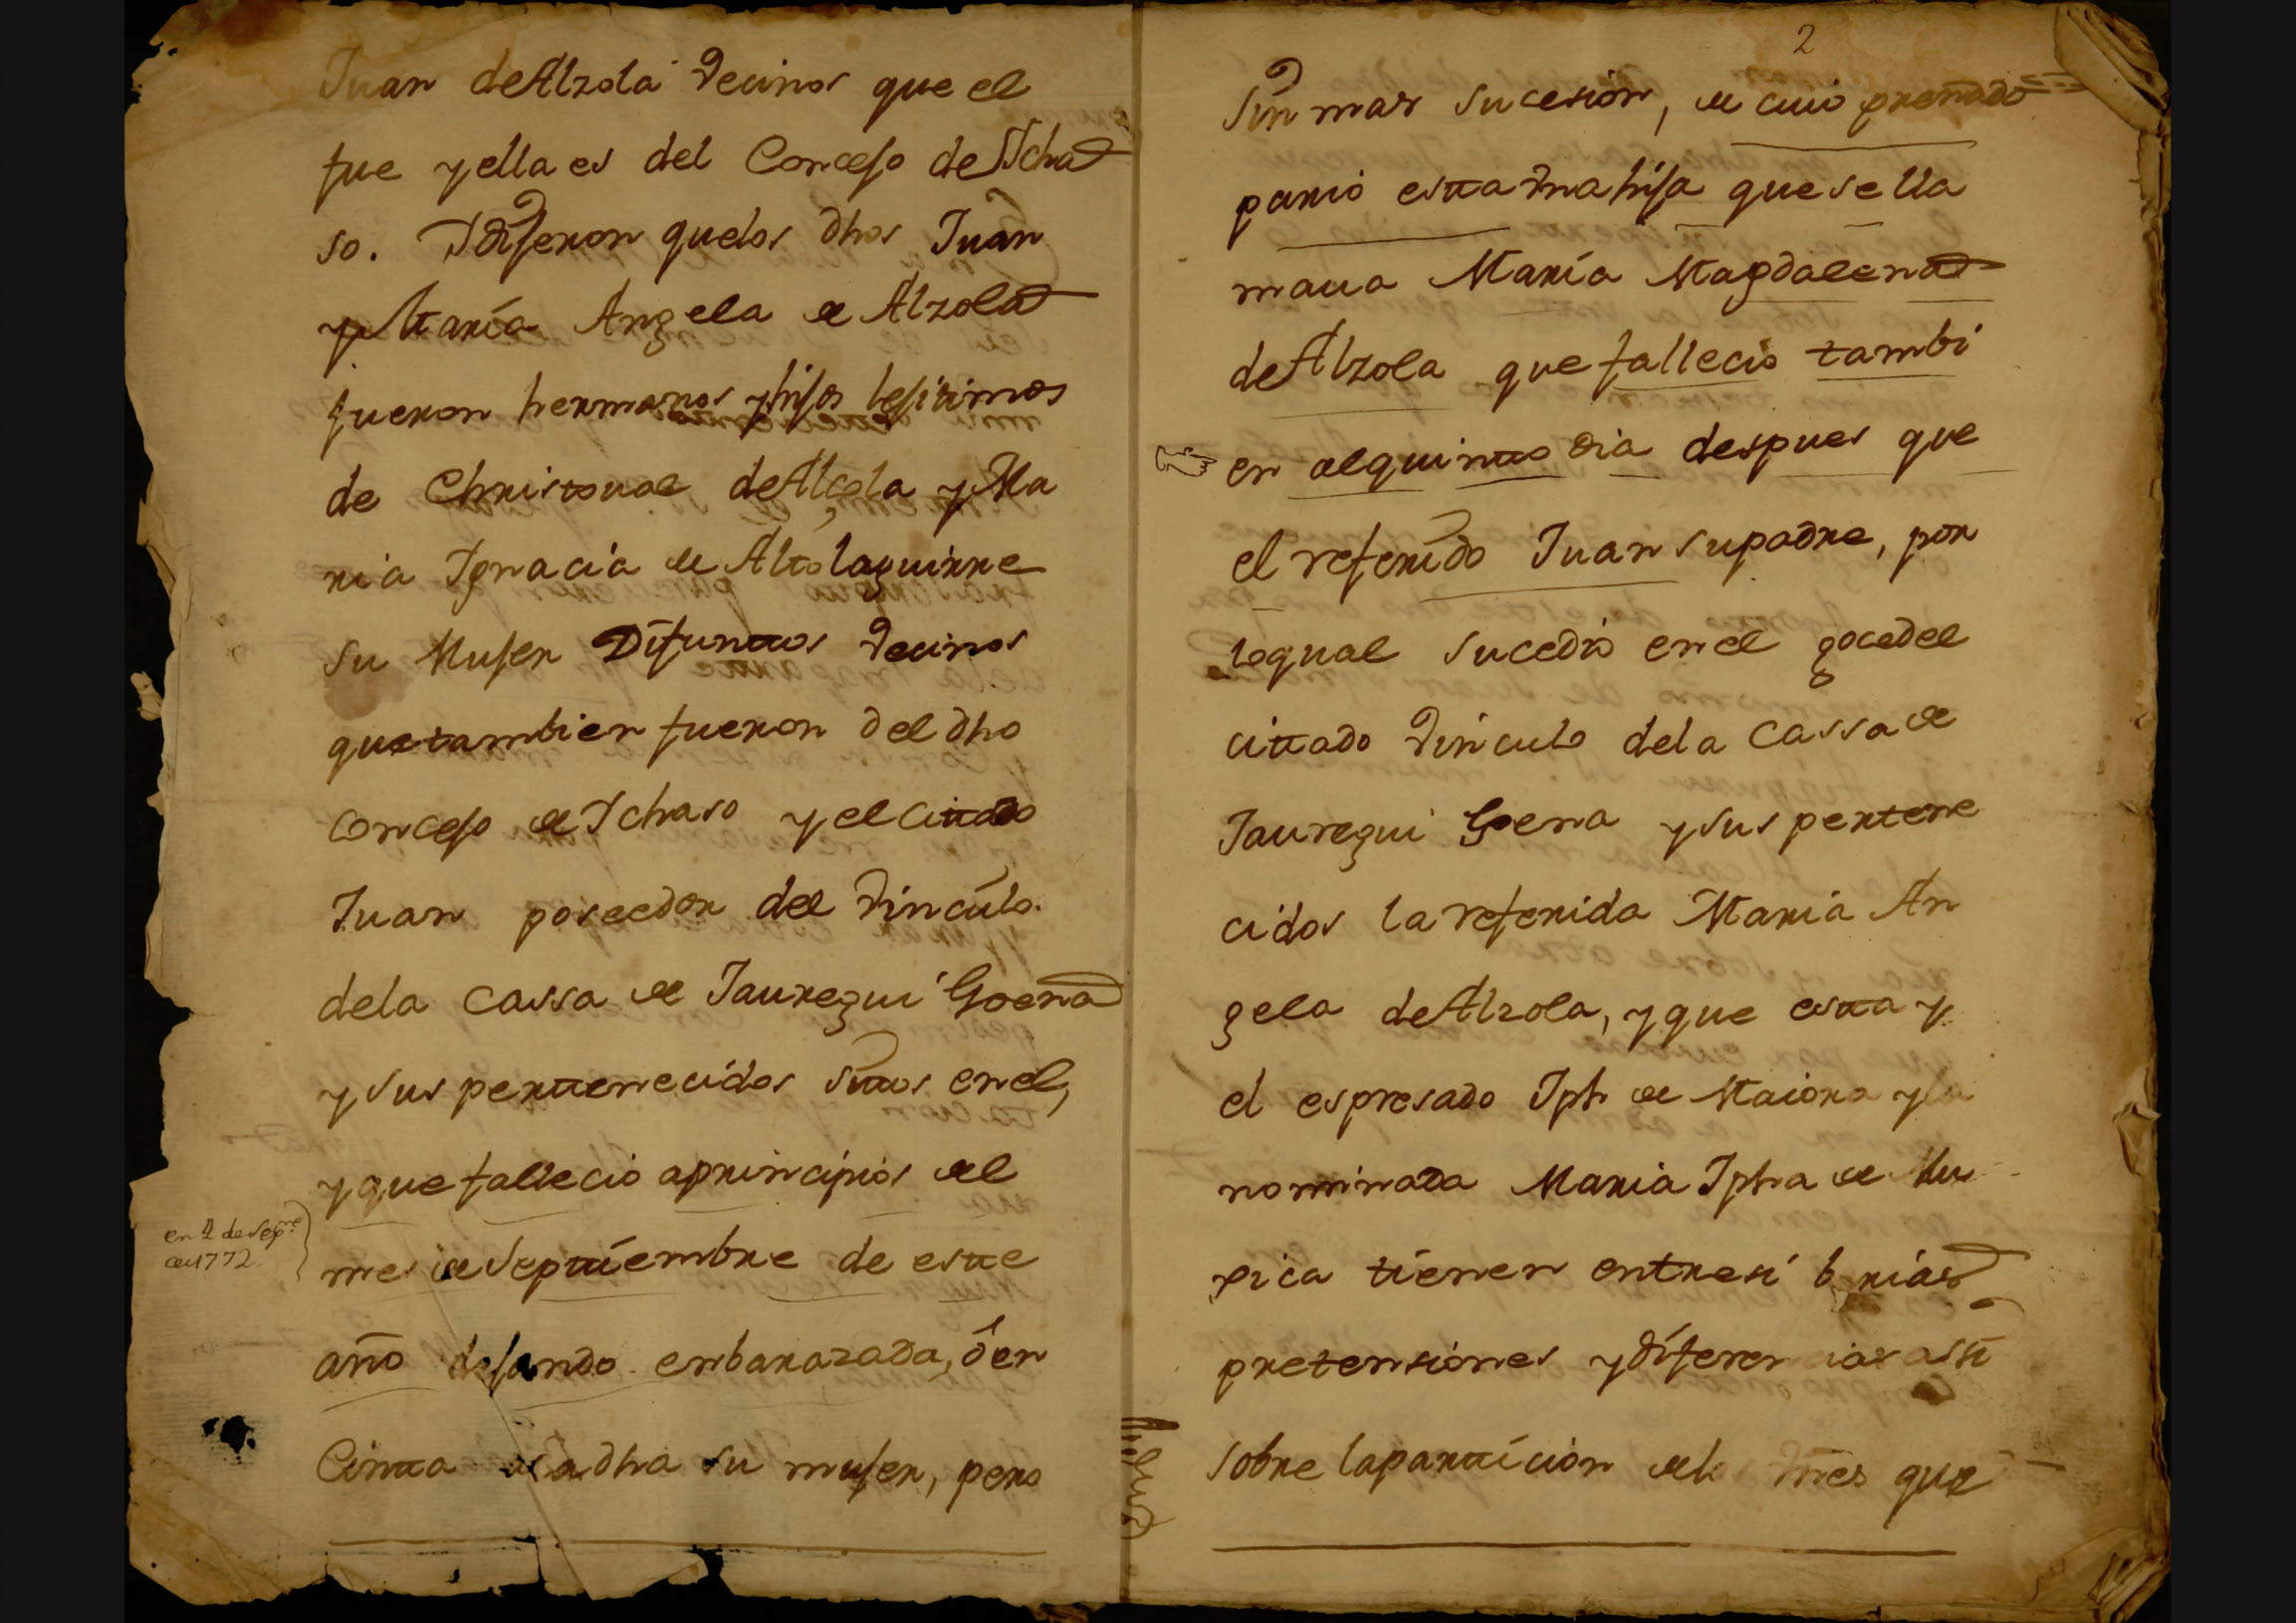 Juan de Alzola vecinos que el
fue y ella es del Concejo de Ycha
so. Y dijeron que los dhos Juan
y María Angela de Alzola
fueron hermanos y hijos lejitimos
de Christoual de Alçola y Ma
ria Ygnacia de Altolaguirre
su Mujer Difuntos vecinos
que tambien fueron del dho
concejo de Ychaso y el cittado
Juan poseedor del vinculo
de la cassa de Jauregui Goena
y sus perttenecidos sittos en el,
y que fallecio a principios del
mes de Septtiembre de este
en 2 de Sepre
de 1772
año dejando enbarazada, ó en
Cintta a la dha su mujer, pero
2
sin mas sucesión, de cuio preñado
pario estta vna hija que se lla
maua María Magdalena
de Alzola que fallecio tambi
en al quinto dia despues que
el referido Juan su padre, por
lo qual sucedio en el goce del
cittado vinculo de la Cassa de
Jauregui Goena y sus pertene
cidos la referida Maria An
gela de Alzola, y que estta y
el espresado Jph de Maiora y la
nominada Maria Jpha de Mu
xica tienen entre si barias
pretensiones y diferencias assi
sobre la partticion de los vnes que